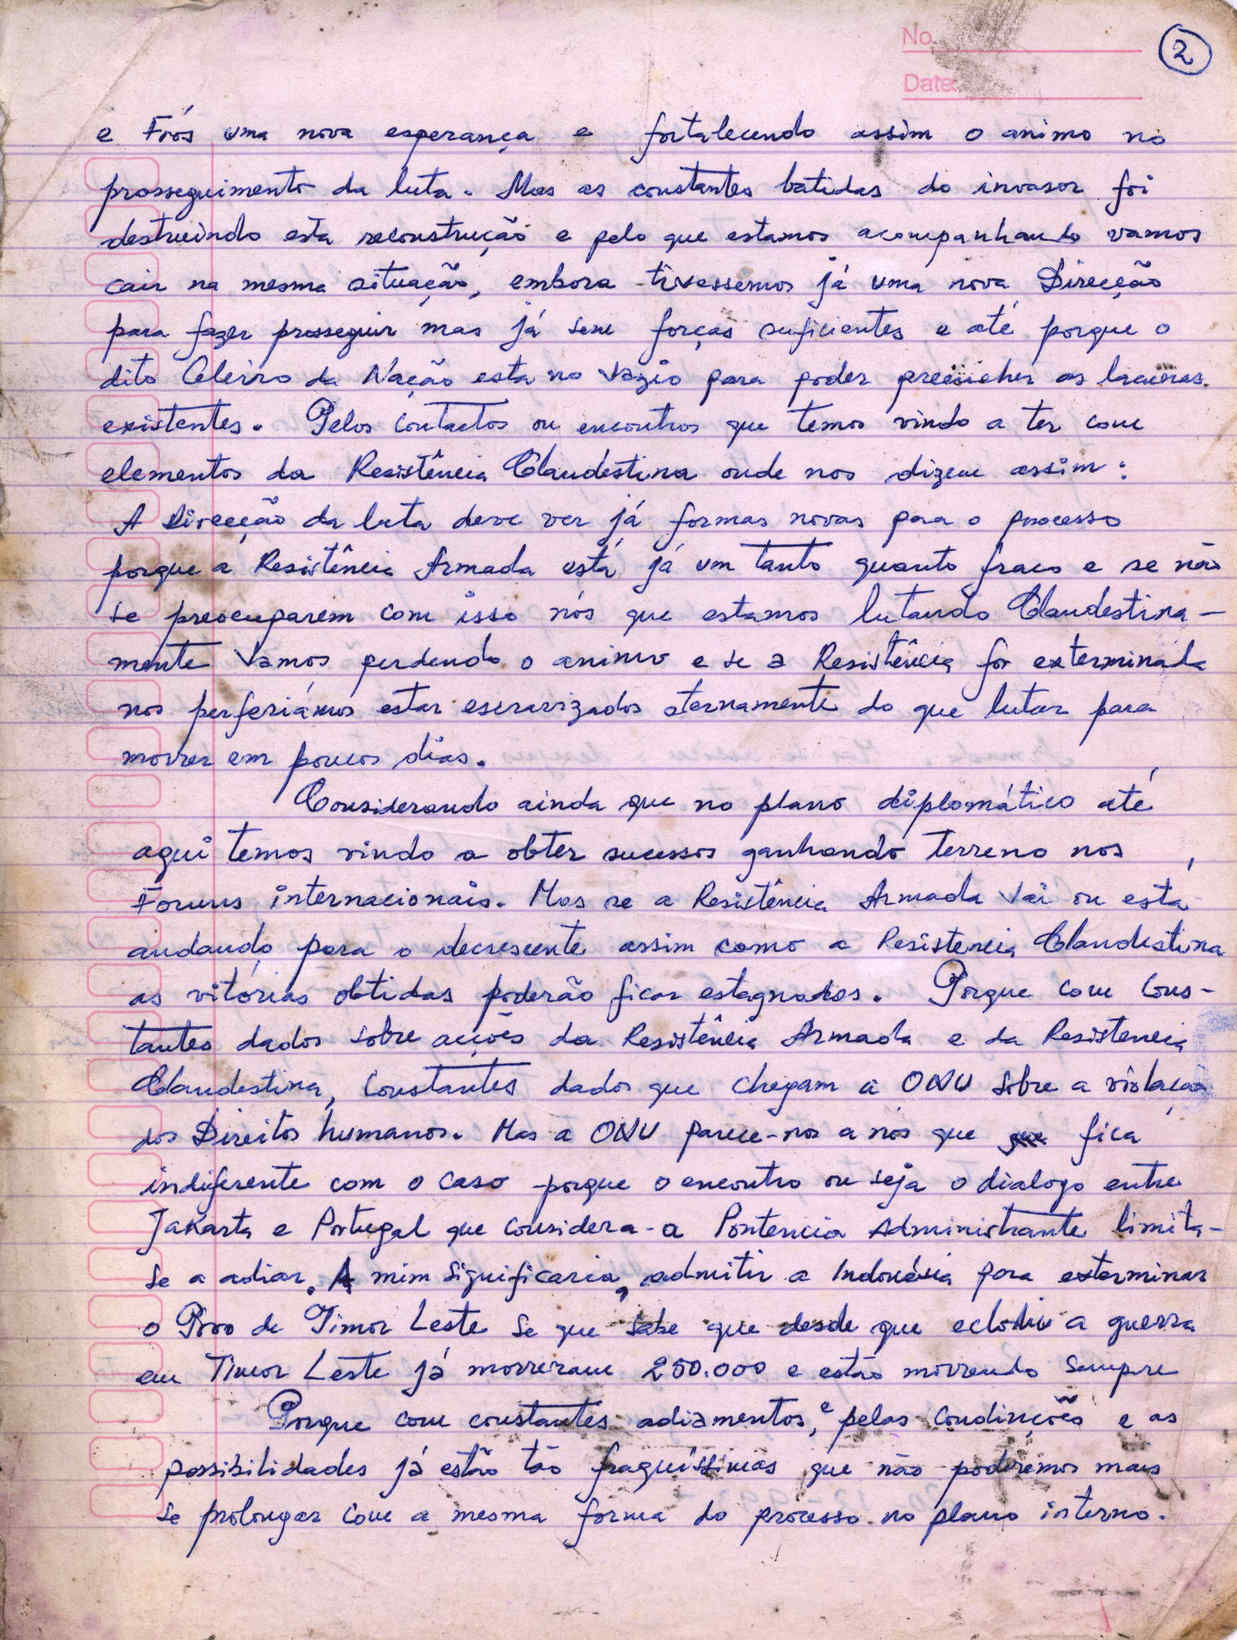 No.
2
Date:
e Frós uma nova esperança e fortalecendo assim o animo no
prosseguimento da luta. Mas as constantes batidas do invasor foi
destruindo esta reconstrução e pelo que estamos acompanhando vamos
cair na mesma situação, embora tivessemos já uma nova Direcção
para fazer prosseguir mas já sem forças suficientes e até porque o
dito Celeiro da Nação esta no vazio para poder preencher as lacunas
existentes. Pelos contactos ou encontros que temos vindo a ter com
elementos da Resistência Clandestina onde nos dizem assim:
A Direcção da luta deve ver já formas novas para o processo
porque a Resistência Armada está já um tanto quanto fraco e se não
se preocuparem com isso nós que estamos lutando Clandestina-
mente vamos perdendo o animo e se a Resistência for exterminada
nos perferiámos estar escravizados eternamente do que lutar para
morrer em poucos dias.
Considerando ainda que no plano diplomático até
aqui temos vindo a obter sucessos ganhando terreno nos
Foruns internacionais. Mas se a Resistência Armada vai ou está
andando para o decrescente assim como a Resistencia Clandestina
as vitórias obtidas poderão ficar estagnados. Porque com Cons-
tantes dados sobre acções da Resistência Armada e da Resistencia
Clandestina, Constantes dados que chegam a ONU sobre a violação
dos Direitos humanos. Mas a ONU parece-nos a nós que fica
indiferente com o caso porque o encontro ou seja o dialogo entre
Jakarta e Portugal que considera-a Pontencia Administrante limita-
se a adiar. A mim significaria, admitir a Indonésia para exterminar
o Povo de Timor Leste se que sabe que desde que eclodiu a guerra
em Timor Leste já morreram 250.000 e estão morrendo sempre
Porque com constantes adiamentos, e pelas Condinções e as
possibilidades já estão tão fraquíssimas que não poderemos mais
se prolongar com a mesma forma do processo no plano interno.